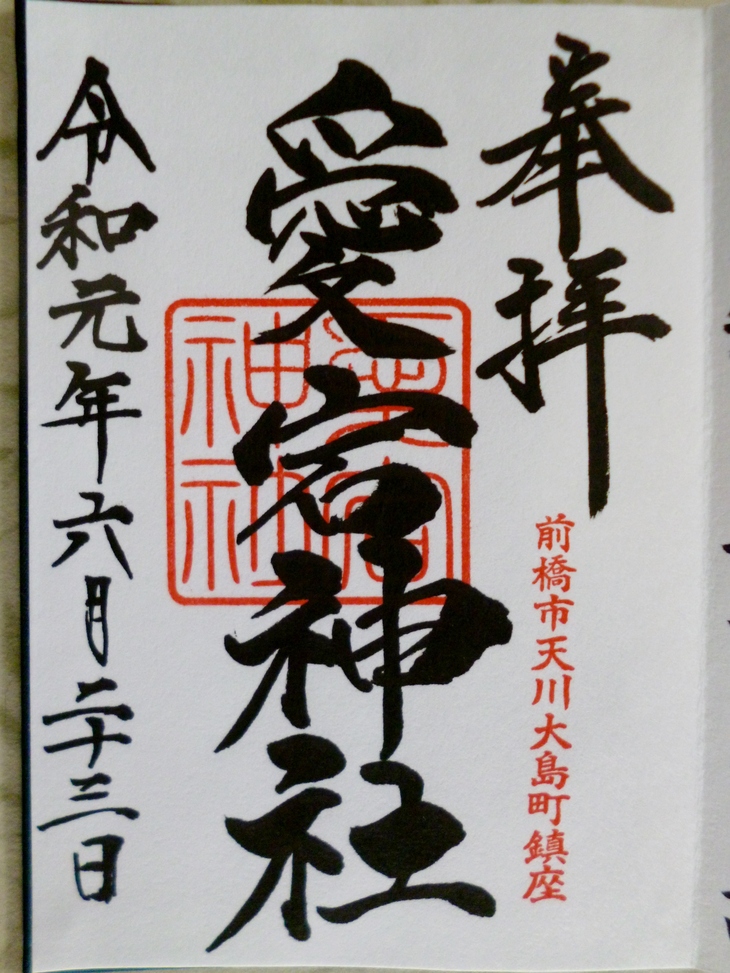 奉拝
前橋市天川大島町鎮座
愛宕神社
愛宕
神社
令和元年六月二十三日